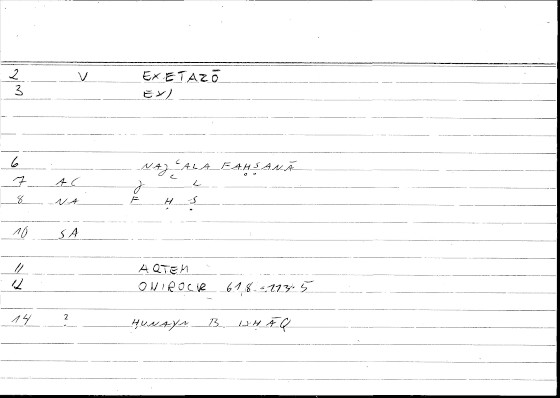 2 V EXETAZŌ
3 EXI
6 NAJʿALA FAḤṢANĀ
7 AC J ʿ L
8 NA F Ḥ Ṣ
10 SA
11 ARTEM
12 ONIROCR 61,8 - 113,5
14 ? HUNAYN B ISHĀQ